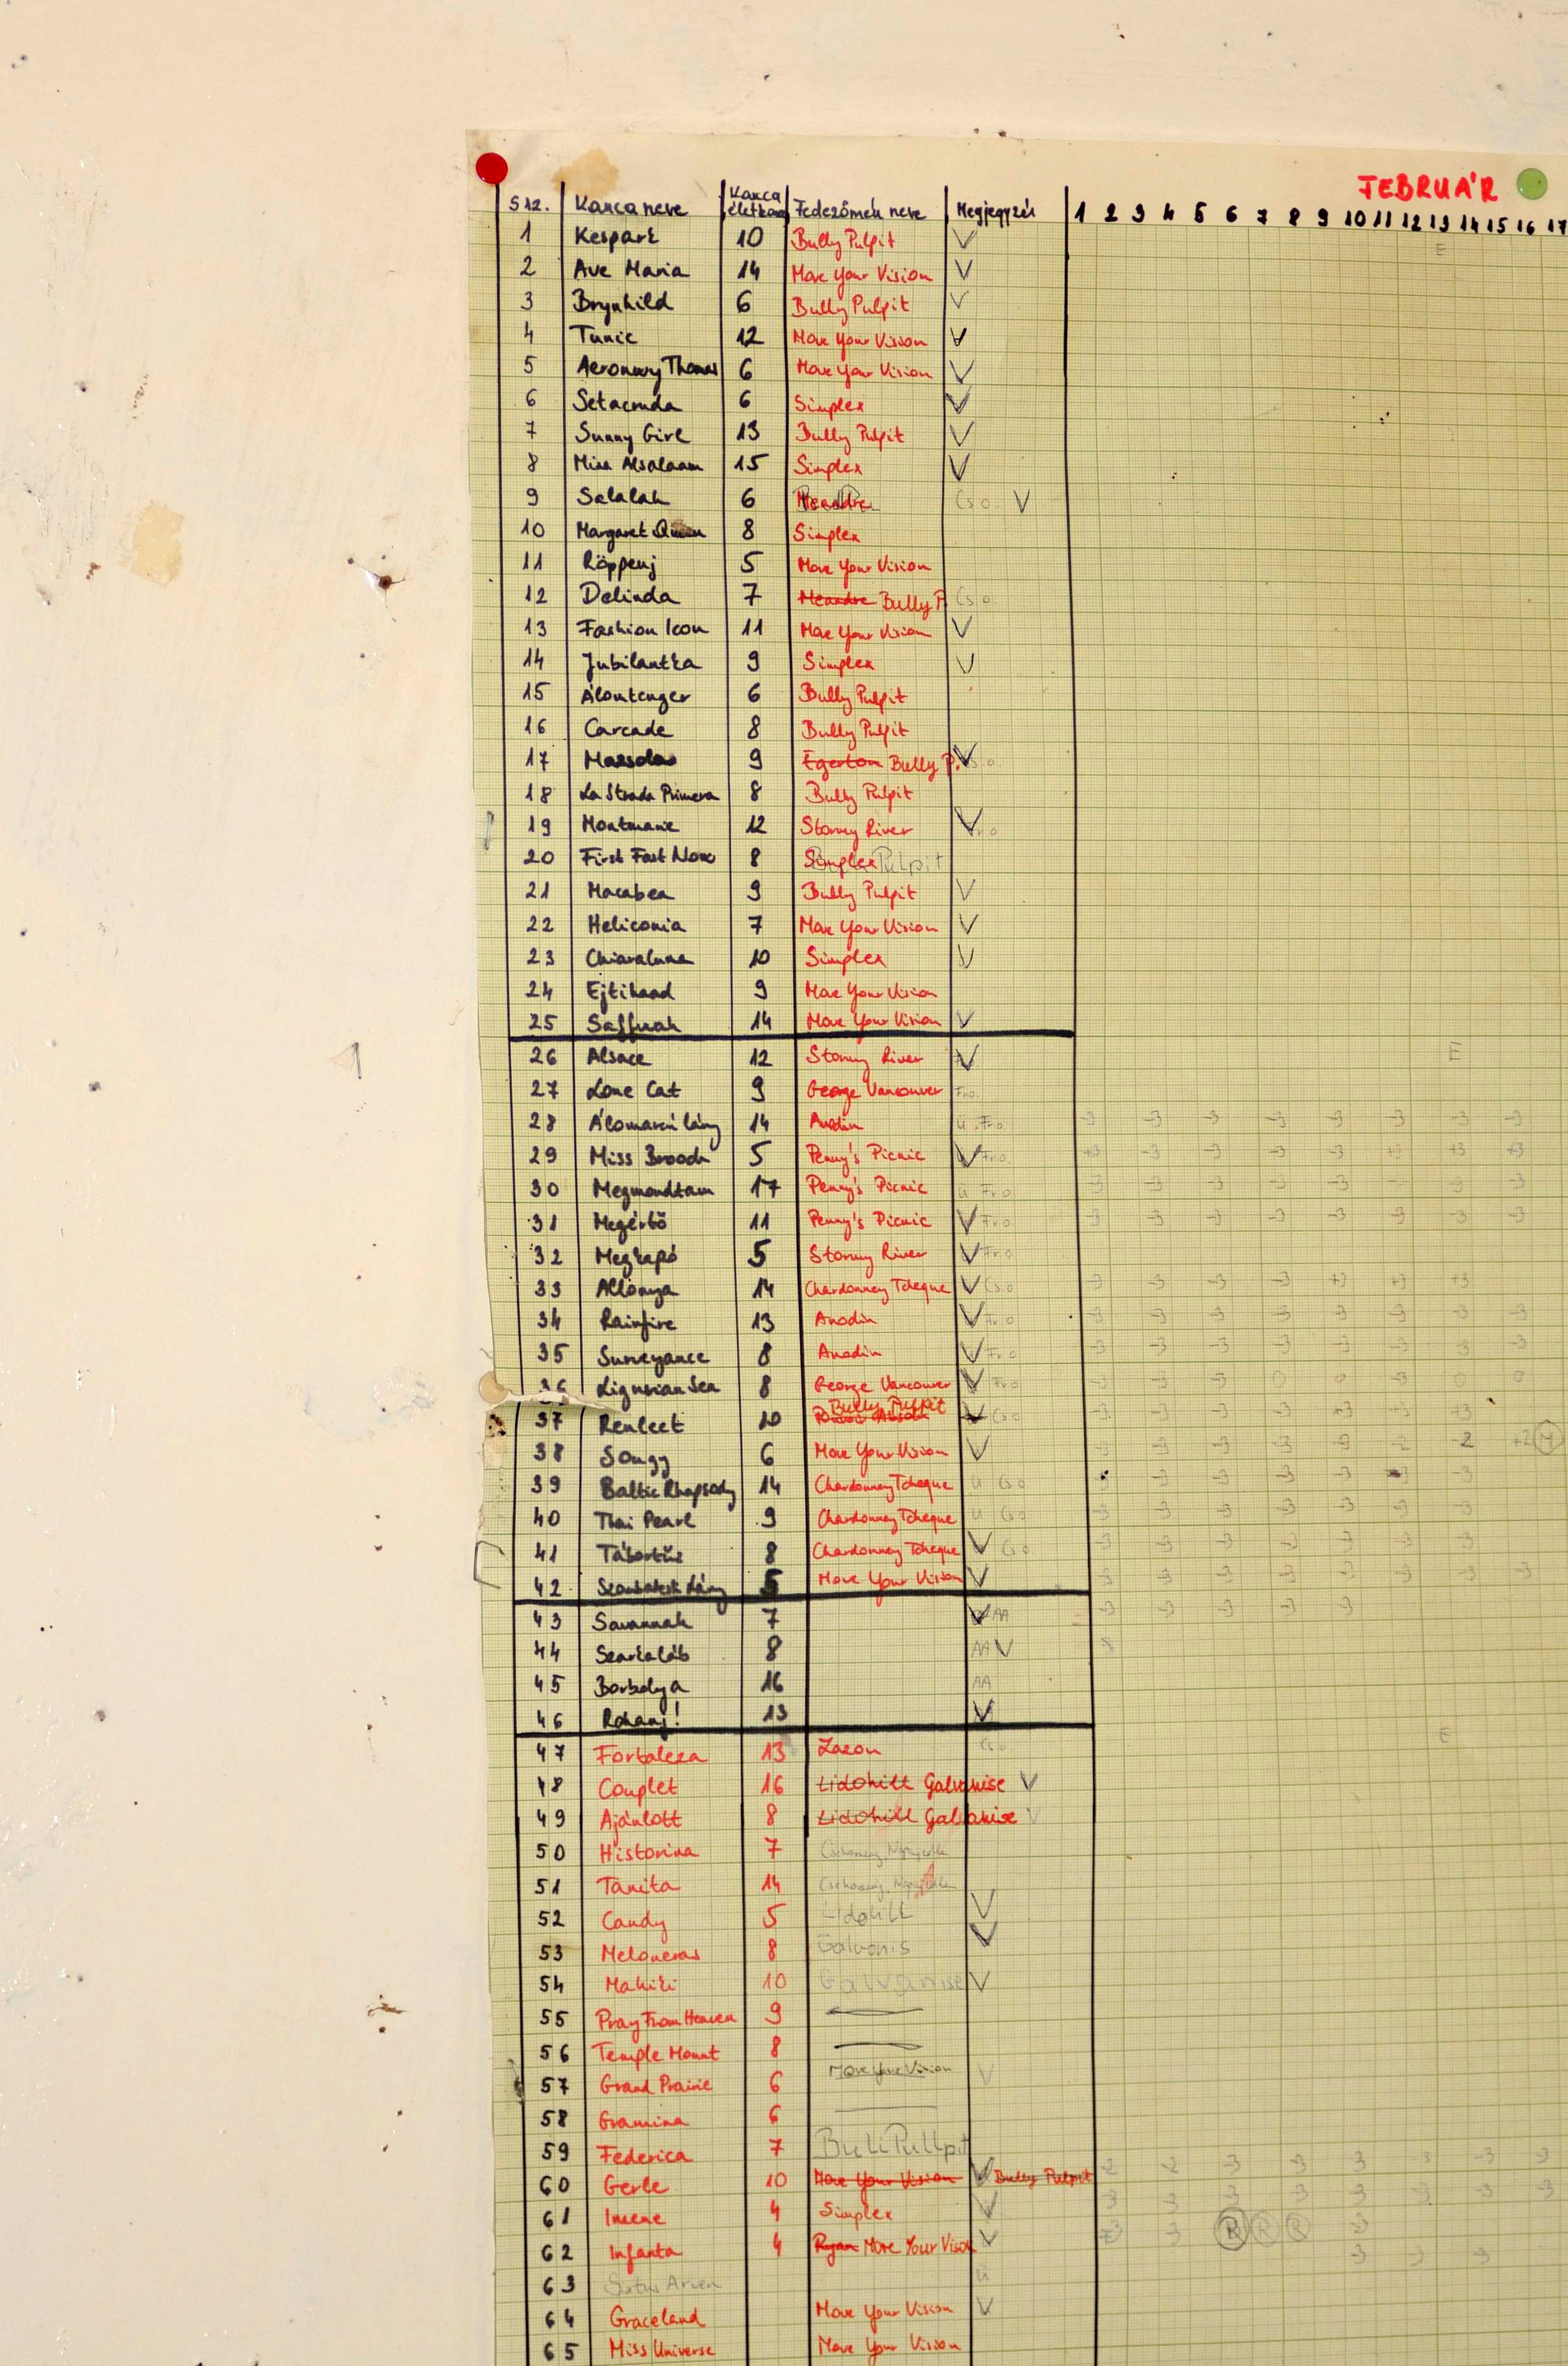 FEBRUÁR
Ssz. Kanca neve Kanca életkora Fedezőmén neve Megjegyzés 1 2 3 4 5 6 7 8 9 10 11 12 13 14 15 16 17
1 Kespark 10 Bully Pulpit V E
2 Ave Maria 14 More Your Vision V
3 Brynhild 6 Bully Pulpit V
4 Tunic 12 More Your Vision V
5 Aeronwy Thomas 6 More Your Vision V
6 Setacruda 6 Simplex V
7 Sunny Girl 13 Bully Pulpit V
8 Miss Alsalaam 15 Simplex V
9 Salalah 6 Cs.o. V
10 Margaret Queen 8 Simplex
11 Röppenj 5 More Your Vision
12 Delinda 7 Meandre Bully P. Cs.o.
13 Fashion Icon 11 More Your Vision V
14 Jubilantka 9 Simplex V
15 Álomtenger 6 Bully Pulpit
16 Carcade 8 Bully Pulpit
17 9 Egerton Bully P. V
18 La Strada Primera 8 Bully Pulpit
19 Montmarie 12 Stormy River V
20 First Fast Now 8 Simplex Pulpit
21 Macabea 9 Bully Pulpit V
22 Heliconia 7 More Your Vision V
23 Chiaraluna 10 Simplex V
24 Ejtihaad 9 More Your Vision
25 Saffwah 14 More Your Vision V
26 Alsace 12 Stormy River V E
27 Lone Cat 9 George Vancouver Fr.o.
28 14 Anodin ü Fr.o. -3 -3 -3 -3 -3 -3 -3 -3
29 Miss Brooch 5 Penny's Picnic V Fr.o. +3 -3 -3 -3 -3 +3 +3 +3
30 Megmondtam 17 Penny's Picnic ü Fr.o -3 -3 -3 -3 -3 -3 -3
31 Megérkő 11 Penny's Picnic V Fr.o -3 -3 -3 -3 -3 -3 -3 -3
32 Megkapó 5 Stormy River V Fr.o
33 Allonya 14 Chardonney Tcheque V Cs.o -3 -3 -3 -3 +3 +3 +3
34 Rainfire 13 Anodin V Fr.o -3 -3 -3 -3 -3 -3 -3 -3
35 Surveyance 8 Anodin V Fr.o -3 -3 -3 -3 -3 -3 3 -3
36 Ligurian Sea 8 George Vancouver V Fr.o -3 -3 -3 0 0 -3 0 0
Bully Pulpit
37 Renleet 10 V Cs.o -3 -3 -3 -3 +3 +3 +3
38 Songy 6 More Your Vision V -3 -3 -3 -3 -3 -2 -2 +2 M
39 Baltic Rhapsody 14 Chardonney Tcheque ü Cs.o -3 -3 -3 -3 -3 -3 -3
40 Thai Pearl 9 Chardonney Tcheque ü Cs.o -3 -3 -3 -3 -3 -3 -3
41 Tábortűz 8 Chardonney Tcheque V Cs.o -3 -3 -3 -3 -3 -3 -3
42 5 More Your Vision V -3 -3 -3 -3 -3 -3 -3 -3
43 Savannah 7 V AA -3 -3 -3 -3 -3
44 Szarkaláb 8 AA V
45 Borbolya 16 AA
46 Rohanj! 13 V
47 Fortaleza 13 Lazon Cs.o E
48 Couplet 16 Lidohill Galvanise V
49 Ajánlott 8 Lidohill Galvanise V
50 Historina 7
51 Tanita 14
52 Candy 5 Lidohill V
53 Meloneras 8 Galvonis V
54 Makiki 10 Galvanise V
55 Pray From Heaven 9
56 Temple Mount 8
57 Grand Prairie 6 More Your Vision V
58 Gramina 6
59 Federica 7 Buli Pullpit
60 Gerle 10 More Your Vision V Bully Pulpit -2 -2 -3 -3 -3 -3 -3 -3
61 Imene 4 Simplex V -3 -3 -3 -3 -3 -3 -3 -3
62 Infanta 4 Ryan More Your Vison V -3 -3 R R R -3
63 ü -3 -3 -3
64 Graceland More Your Vision V
65 Miss Universe More Your Vision